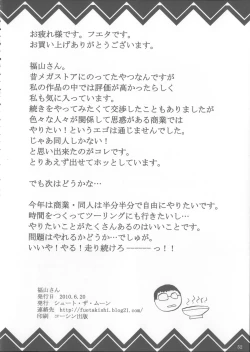 お疲れ様です。フエタです。
お買い上げありがとうございます。
福山さん。
昔メガストアにのってたやつなんですが
私の作品の中では評価が高かったらしく
私も気に入っています。
続きをやってみたくて交渉したこともありましたが
色々な人々が関係して思惑がある商業では
やりたい！というエゴは通じませんでした。
じゃあ同人しかない！
と思い出来たのがコレです。
とりあえず出せてホッとしています。
でも次はどうかな…
今年は商業・同人は半分半分で自由にやりたいです。
時間をつくってツーリングにも行きたいし…
やりたいことがたくさんあるのはいいことです。
問題はやれるかどうか…でしゅが。
いいや！やる！走り続けろ―――っ！！
福山さん
発行日 2010.6.20
発行 シュート・ザ・ムーン
連絡先 http://fuetakishi.blog21.com/
印刷 コーシン出版